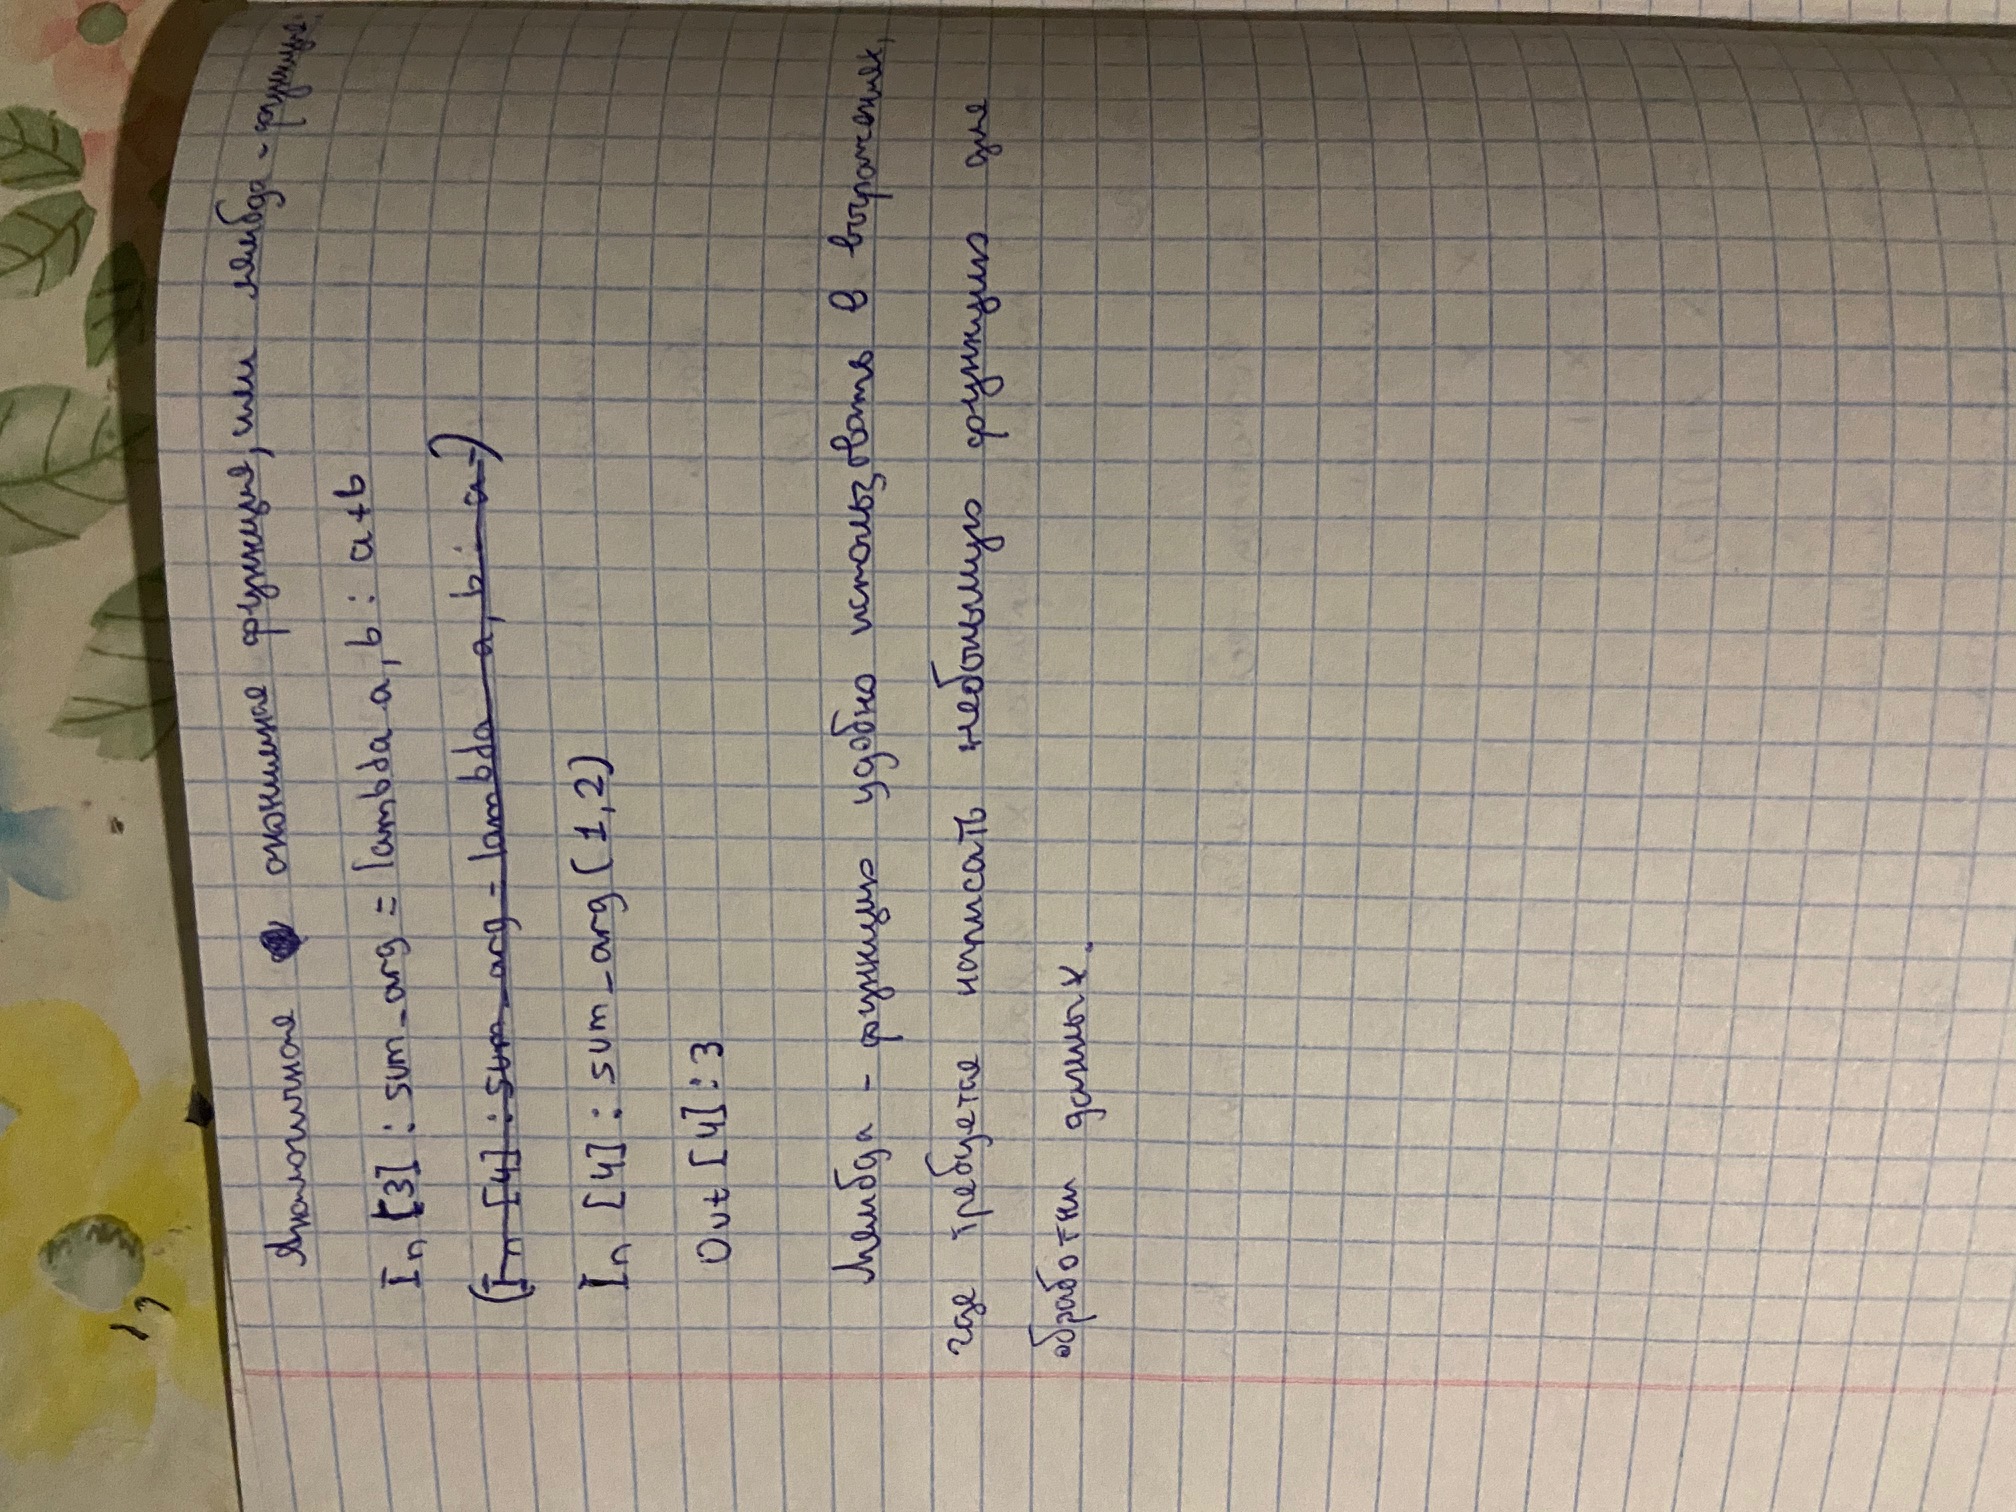 Аналогичная анонимная функция, или лямбда-функция:
In [3] : sum_arg = lambda a, b : a+b
(In [4] : sum_arg = lambda a, b : a-)
In [4] : sum_arg (1,2)
Out [4] : 3
Лямбда - функцию удобно использовать в выражениях,
где требуется написать небольшую функцию для
обработки данных.